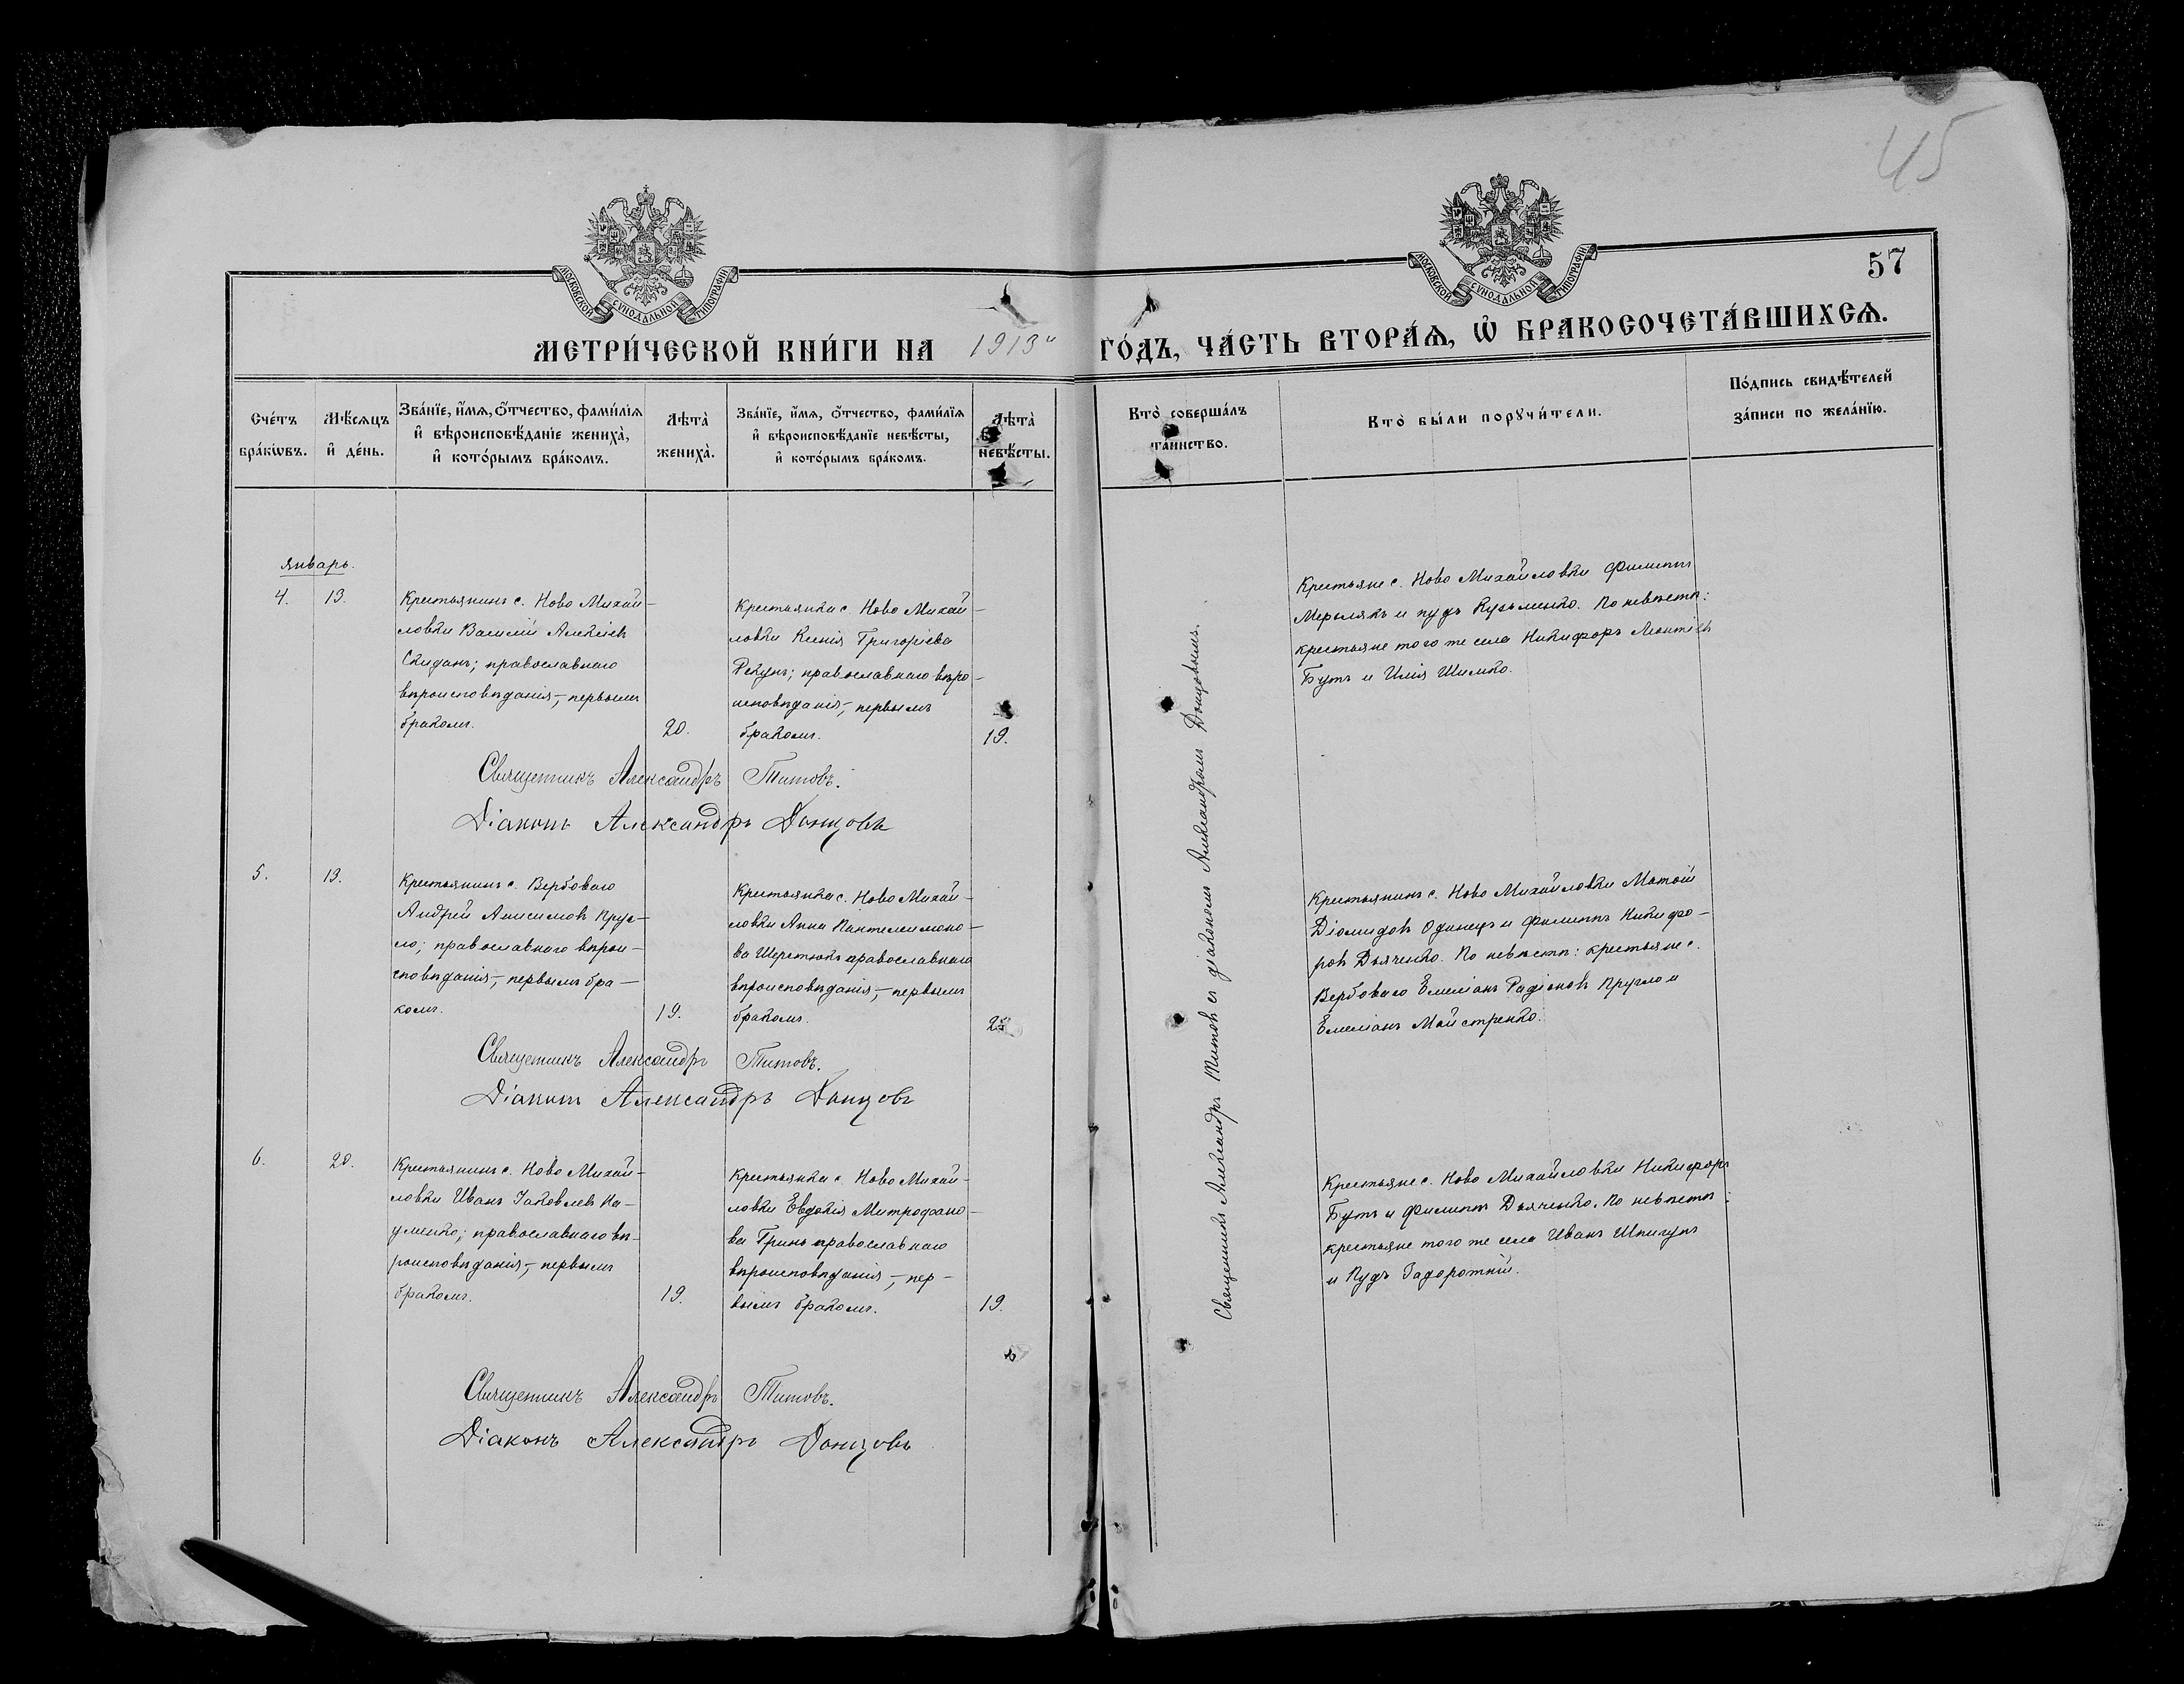 45
57
МОСКОВСКОЙ СѴНОДАЛЬНОЙ ТИПОГРАФІИ
МОСКОВСКОЙ СѴНОДАЛЬНОЙ ТИПОГРАФІИ
МЕТРИ́ЧЕСКОЙ КНИ́ГИ НА 1913й ГО́ДЪ, ЧА́СТЬ ВТОРА́Ѧ, Ѡ҆ БРАКОСОЧЕТА́ВШИХСѦ.
Сче́тъ
бра́кѡвъ.
Мѣ́сяцъ
и҆ де́нь.
Зва́нїе, и҆́мя, ѻ҆́тчество, фами́лїя
и҆ вѣроисповѣ́данїе жениха̀,
и҆ кото́рымъ бра́комъ.
Лѣта̀
жениха̀.
Зва́нїе, и҆́мя, ѻ҆́тчество, фами́лїя
и҆ вѣроисповѣ́данїе невѣ́сты,
и҆ кото́рымъ бра́комъ.
Лѣта̀
невѣ́сты.
Кто̀ соверша́лъ
та́инство.
Кто̀ бы́ли порꙋчи́тели.
По́дпись свидѣ́телей
за́писи по жела́нїю.
Январь.
4.
13.
Крестьянинъ с. Ново Михай-
ловки Василій Алексіевъ
Скиданъ; православнаго
вѣроисповѣданія, первымъ
бракомъ.
20.
Крестьянка с. Ново Михай-
ловки Ксенія Григоріева
Рекунъ; православнаго вѣро-
исповѣданія, первымъ
бракомъ.
19.
Крестьяне с. Ново Михайловки Филиппъ
Мерзлякъ и Пудъ Кузьменко. По невѣстѣ:
крестьяне того же села Никифоръ Леонтіевъ
Бутъ и Илія Шимко.
Священникъ Александръ Титовъ.
Діаконъ Александръ Донцовъ
5.
13.
Крестьянинъ с. Вербоваго
Андрей Анисимовъ Круг-
ло; православнаго вѣрои-
сповѣданія, первымъ бра-
комъ.
19.
Крестьянка с. Ново Михай-
ловки Анна Пантелеимоно-
ва Шерстюкъ православнаго
вѣроисповѣданія, первымъ
бракомъ.
Крестьянинъ с. Ново Михайловки Матѳій
Діомидовъ Одинецъ и Филиппъ Никифо-
ровъ Дьяченко. По невѣстѣ: крестьяне с.
Вербоваго Емеліанъ Радіоновъ Кругло и
Емеліанъ Майстренко.
Священникъ Александръ Титовъ.
Діаконъ Александръ Донцовъ
6.
20.
Крестьянинъ с. Ново Михай-
ловки Иванъ Іаковлевъ На-
уменко; православнаго вѣ-
роисповѣданія, первымъ
бракомъ.
19.
Крестьянка с. Ново Михай-
ловки Евдокія Митрофано-
ва Гринь православнаго
вѣроисповѣданія, пер-
вымъ бракомъ.
19.
Крестьяне с. Ново Михайловки Никифоръ
Бутъ и Филиппъ Дьяченко. По невѣстѣ:
крестьяне того же села Иванъ Шпигунъ
и Пудъ Задорожній.
Священникъ Александръ Титовъ.
Діаконъ Александръ Донцовъ
Священникъ Александръ Титовъ съ діакономъ Александромъ Донцовымъ.